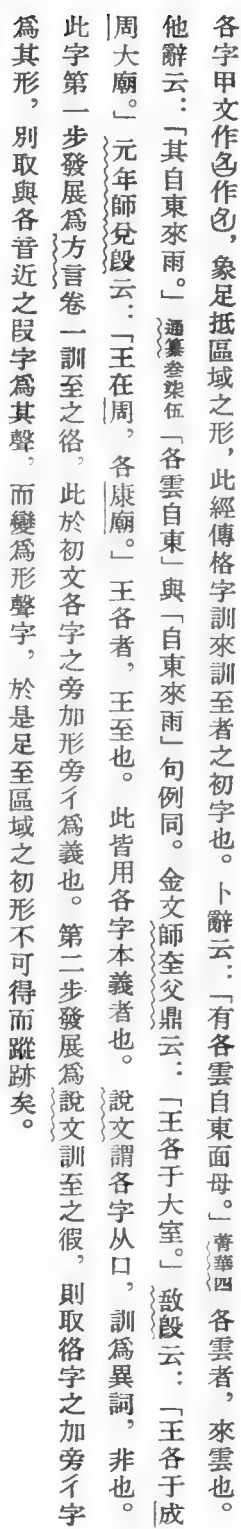 各字甲文作𠙵作各，象足抵區域之形，此經傳格字訓來訓至者之初字也。卜辭云：「有各雲自東面母。」菁華四 各雲者，來雲也。
他辭云：「其自東來雨。」通纂叁柒伍「各雲自東」與「自東來雨」句例同。金文師全父鼎云：「王各于大室。」敔𣪘云：「王各于成
周大廟。」元年師兌𣪘云：「王在周，各康廟。」王各者，王至也。此皆用各字本義者也。說文謂各字从口，訓爲異詞，非也。
此字第一步發展爲方言卷一訓至之𢓜，此於初文各字之旁加形旁彳爲義也。第二步發展爲說文訓至之徦，則取𢓜字之加旁彳字
爲其形，別取與各音近之叚字爲其聲，而變爲形聲字，於是足至區域之初形不可得而蹤跡矣。